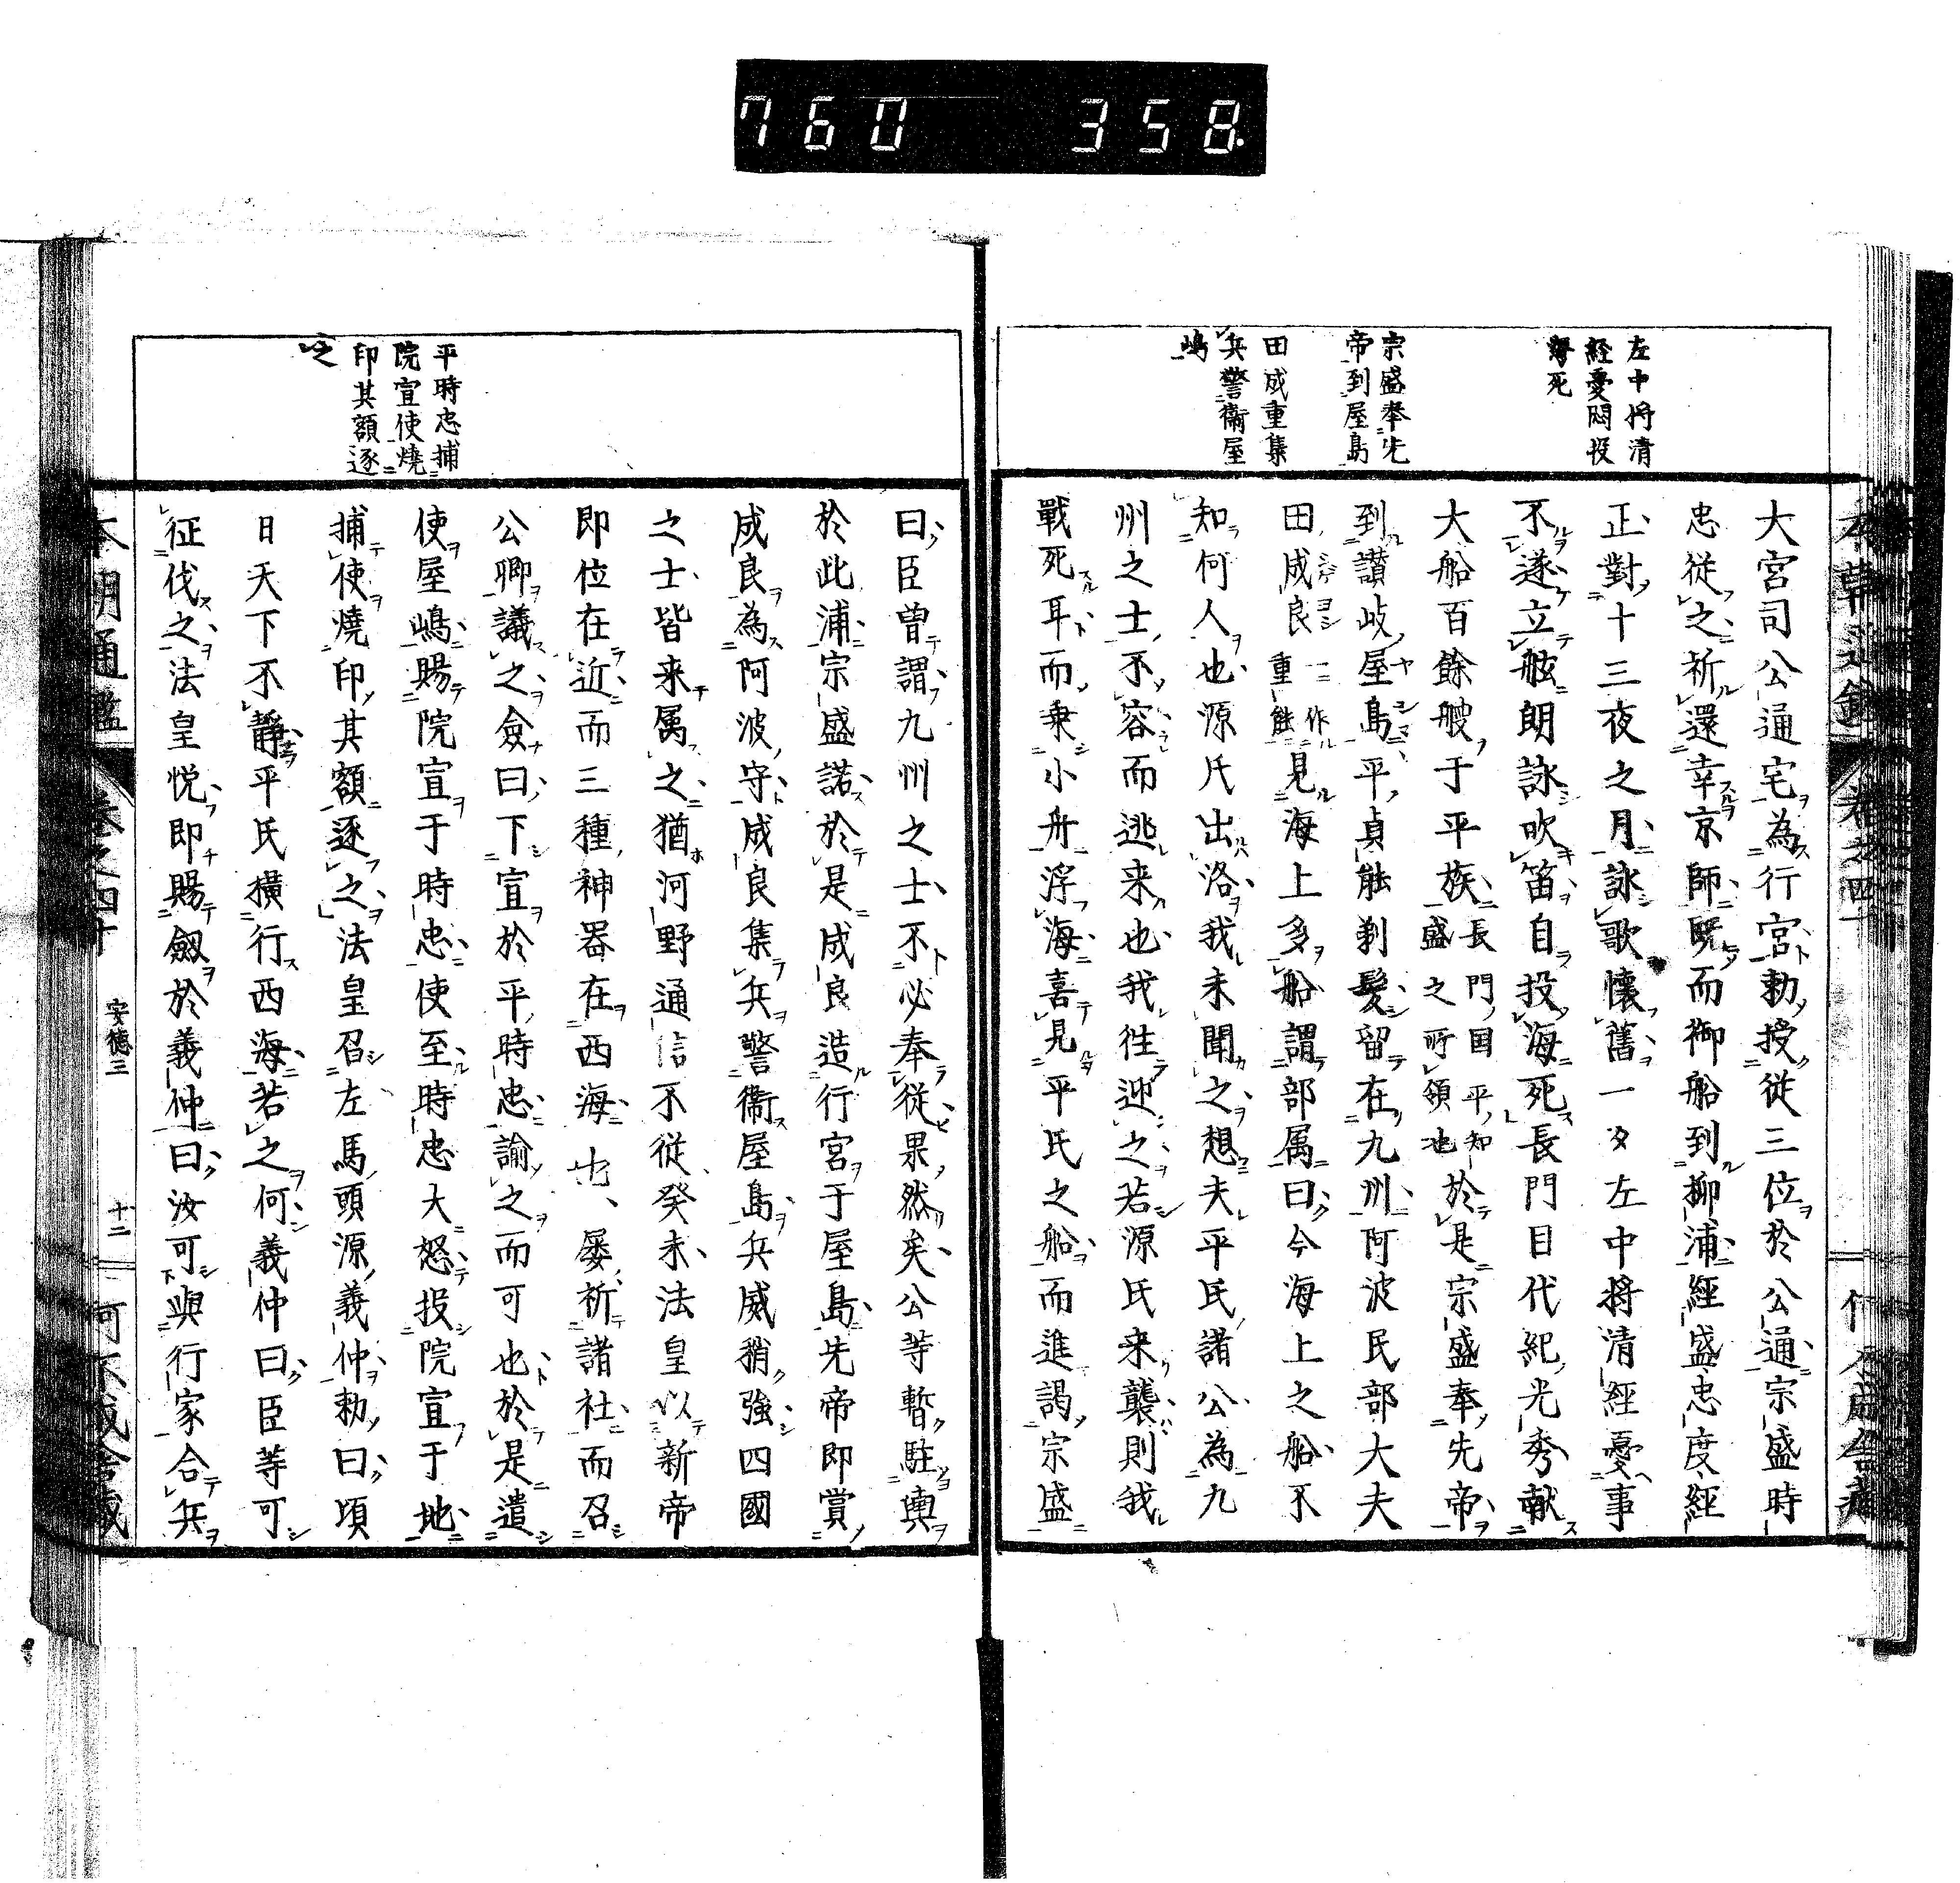 760 358.
左中将清
経憂悶投
海死
宗盛奉先
帝到屋島
田成重集
兵警衞屋
嶋
大宮司公通宅為行宮勅授従三位於公通宗盛時
忠従之祈還幸京師既而御船到柳浦經盛忠度經
正對十三夜之月詠歌懷舊一夕左中将清經憂事
不遂立舷朗詠吹笛自投海死長門目代紀光秀献
大船百餘艘于平族長門国平知盛之所領也於是宗盛奉先帝
到讃岐屋島平貞能剃髪留在九州阿波民部大夫
田成良一作重能見海上多船謂部属曰今海上之船不
知何人也源氏出洛我未聞之想夫平氏諸公為九
州之士不容而逃来也我徃迎之若源氏来襲則我
戰死耳而乗小舟浮海喜見平氏之船而進謁宗盛
平時忠捕
院宣使燒
印其額逐
之
曰臣曽謂九州之士不必奉従果然矣公等暫駐輿
於此浦宗盛諾於是成良造行宮于屋島先帝即賞
成良為阿波守成良集兵警衞屋島兵威稍強四國
之士皆来属之猶河野通信不従癸未法皇以新帝
即位在近而三種神器在西海也屡祈諸社而召
公卿議之僉曰下宣於平時忠諭之而可也於是遣
使屋嶋賜院宣于時忠使至時忠大怒投院宣于地
捕使燒印其額逐之法皇召左馬頭源義仲勅曰頃
日天下不靜平氏横行西海若之何義仲曰臣等可
征伐之法皇悦即賜劔於義仲曰汝可與行家合兵
本朝通鑑 卷之四十 安德三 十二